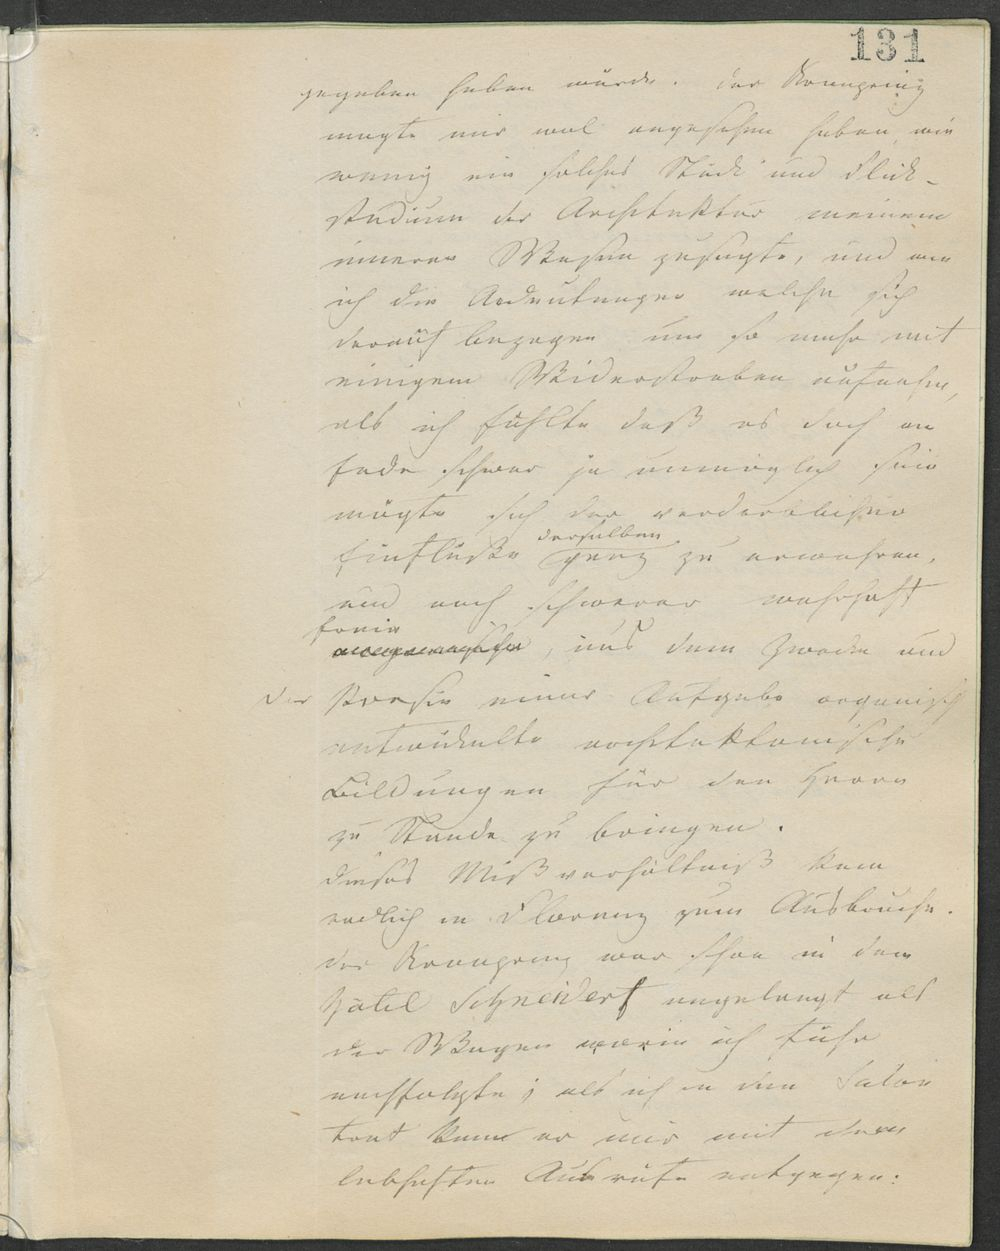 131
gegeben haben würde. Der Kronprinz
mogte mir wol angesehen haben wie
wenig ein solches Stück und Flick-
studium der Architektur meinem
inneren Wesen zusagte, und wie
ich die Andeutungen welche sich
darauf bezogen um so mehr mit
einigem Widerstreben aufnahm,
als ich fühlte daß es doch am
Ende schwer ja unmöglich sein
mögte sich der verderblichen
derselben
Einflüße ganz zu erwehren,
und noch schwerer wahrhaft
freie
, aus dem Zwecke und
der Poesie einer Aufgabe organisch
entwickelte architektonische
Bildungen für den Herrn
zu Stande zu bringen.
Dieses Mißverhältniß kam
endlich in Florenz zum Ausbruche.
Der Kronprinz war schon in dem
Hôtel Schneiderf angelangt als
der Wagen worin ich fuhr
nachfolgte; als ich in den Salon
trat kam er mir mit dem
lebhaften Ausrufe entgegen: